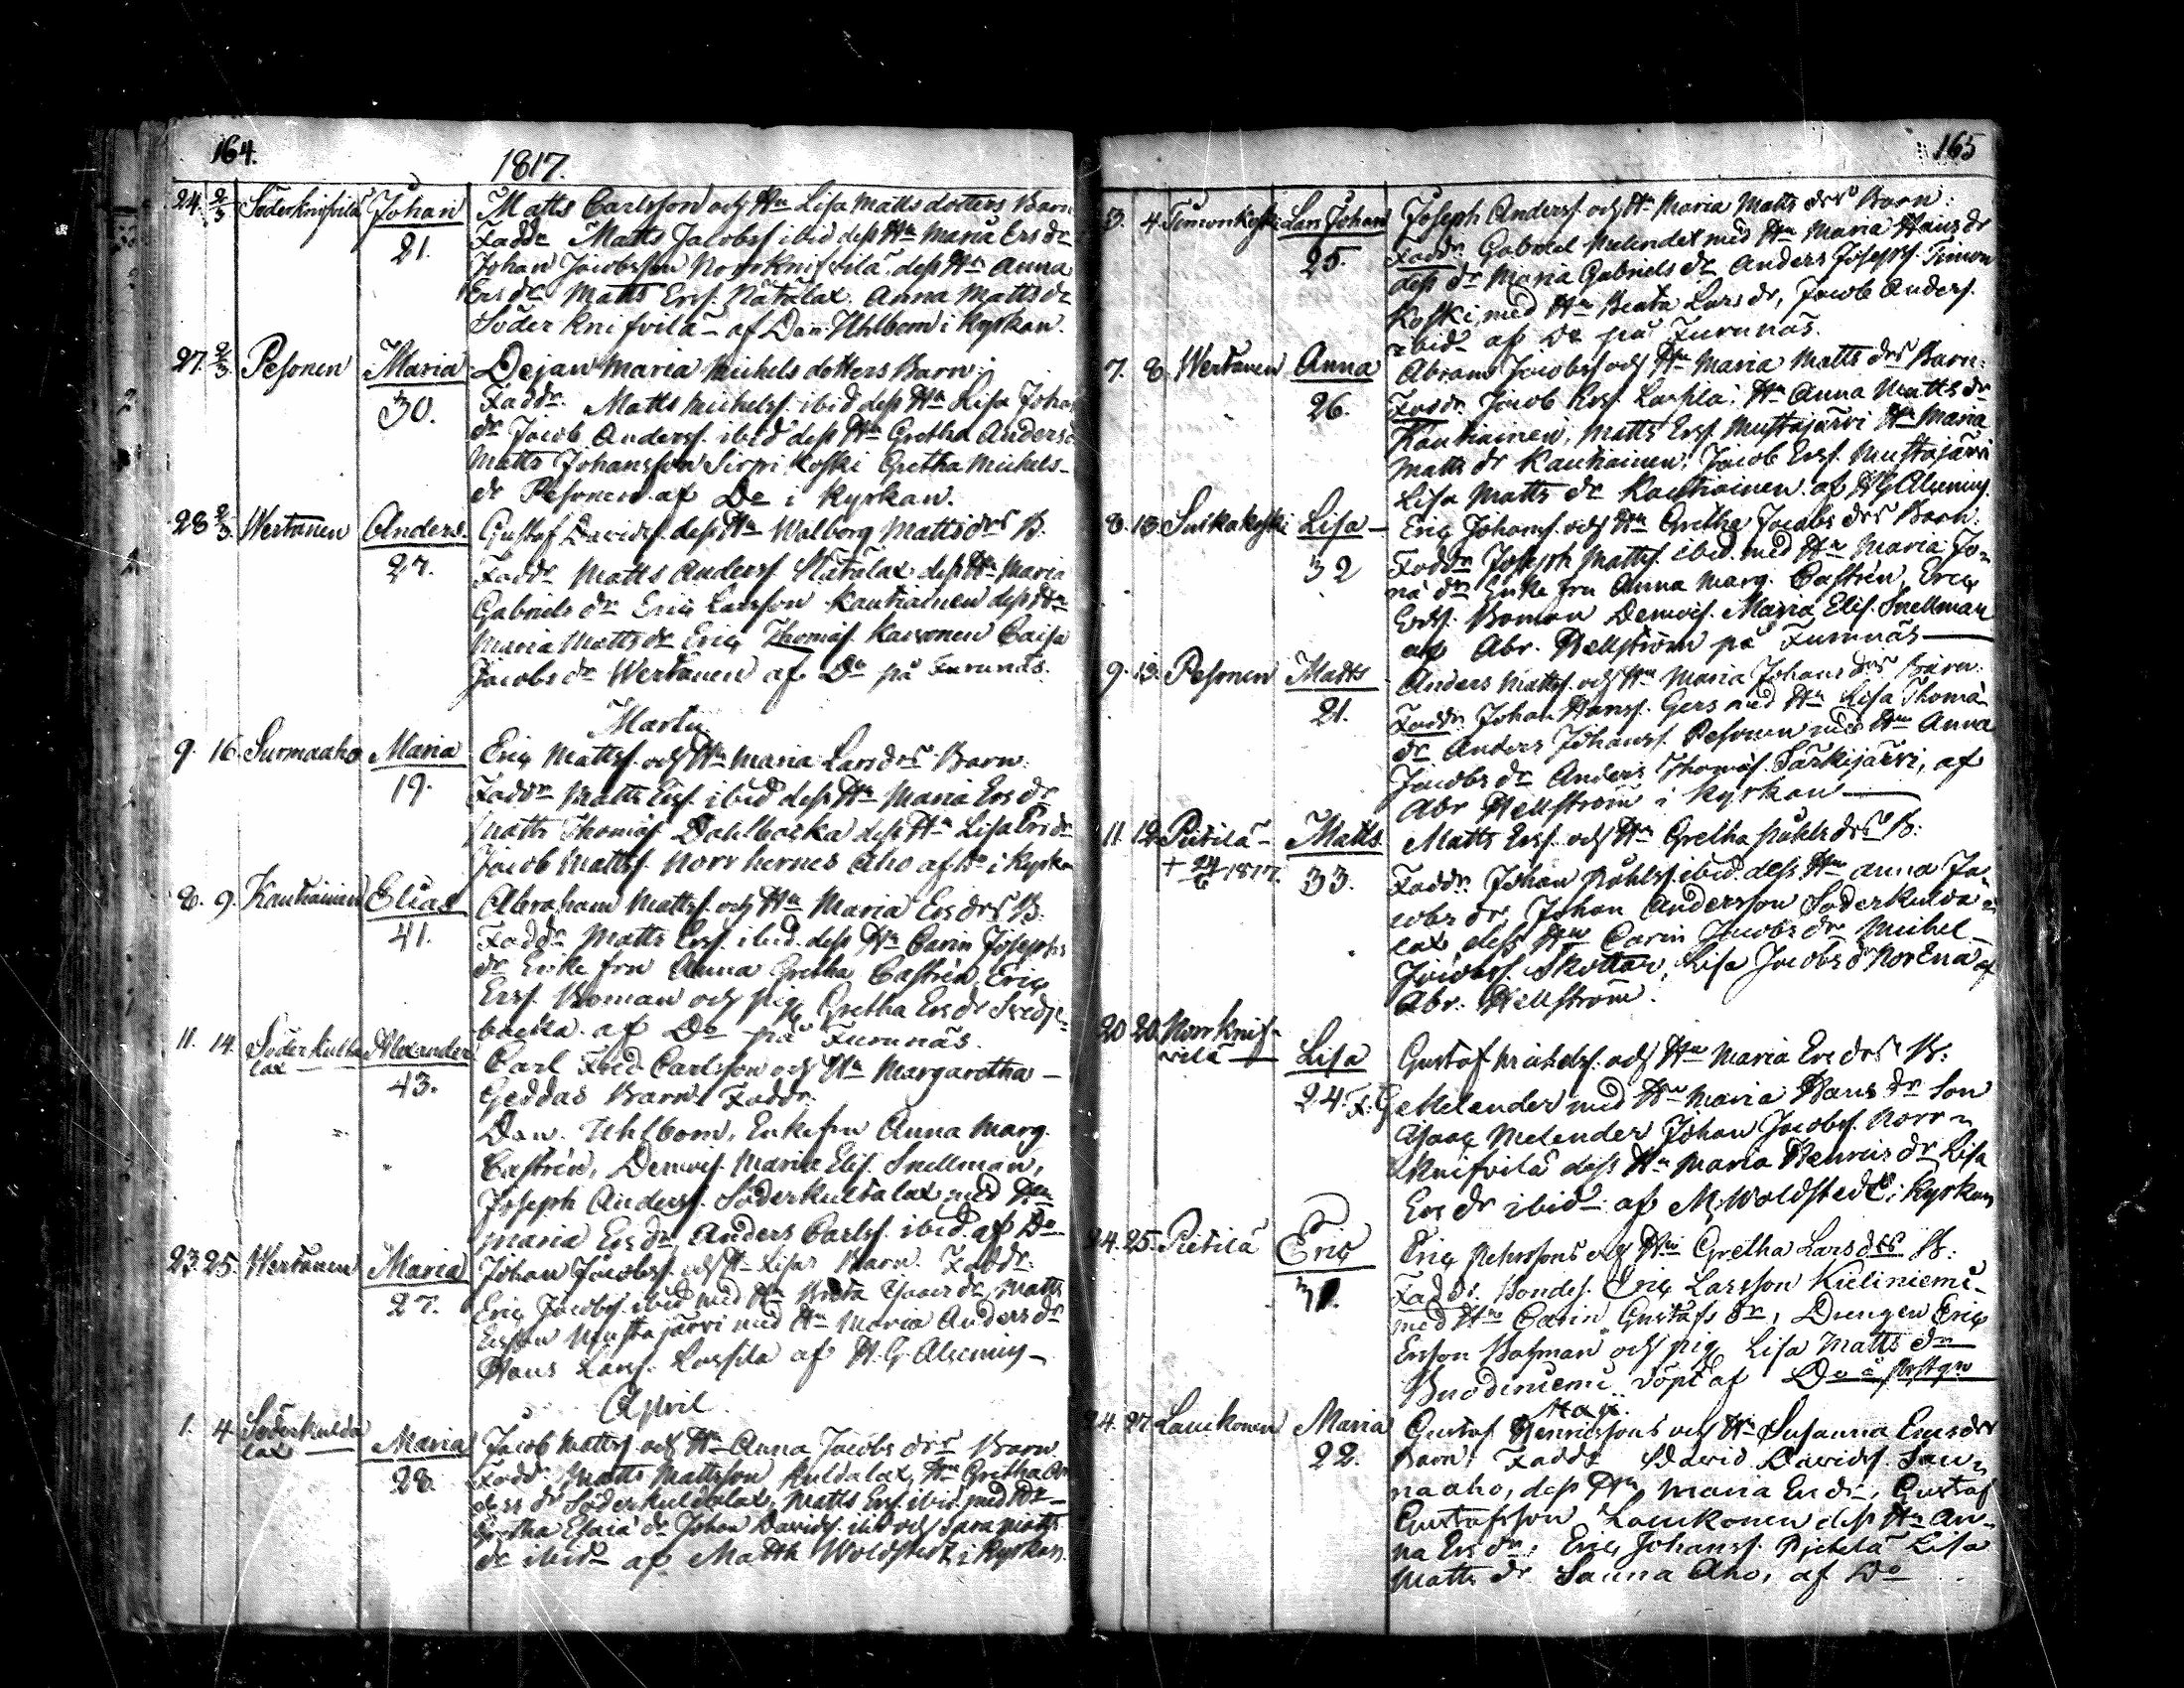 164.
1817.
24. 2/3 Söderknifvilä Johan Matts Carlsson och Hu Lisa Matts dotters Barn
21. Faddr Matts Jacobss ibid dess Hu Maria Ers dr
Johan Jacobsson Norrknifvilä dess Hu Anna
Ers dr Matts Erss. Nätälax Anna Matts dr
Söder knifvilä af Dan: Uhlbom i Kyrkan.
27. 2/3 Pesonen Maria Pejan Maria Michels dotters Barn
30. Faddr. Matts Michelss. ibid dess Hu Lisa Johans
dr Jacob Anderss. ibid dess Hu Gretha Anders
Matts Johansson Sirpi Koski Gretha Michels-
dr Pesonen af Do i Kyrkan.
28 2/3 Wertanen Anders. Gustaf Davidss. dess Hu Walborg Matts drs B.
27. Faddr Matts Anderss. Nätälax dess Hu Maria
Gabriels dr Eric Larsson Kautiainen dess Hu
Maria Matts dr Eric Thomæs. Karvonen Caisa
Jacobs dr Wertanen af Do på Furunäs.
Martii
9. 16. Surmaaho Maria Eric Mattss. och Hu Maria Lars drs Barn.
19. Faddr Matts Erss. ibid dess Hu Maria Ers dr
Matts Thomæs. Dahlbacka dess Hu Lisa Ers dr
Jacob Mattss. Norrhernes Aho af Do i Kyrkan
8. 9. Kautiainen Elias Abraham Mattss. och Hu Maria Ers drs B.
41. Faddr Matts Erss. ibid. dess Hu Carin Josephs
dr Enke fru Anna Gretha Castrén Eric
Erss. Boman och pig. Gretha Ers dr Svedje-
backa af Do på Furunäs.
11. 14. Söderkulta Alexander Carl Fred Carlsson och Hu Margaretha
lax 43. Geddas Barn. Faddr.
Dan. Uhlbom, Enkefru Anna Marg.
Castrén, Demois. Maria Elis. Snellman,
Joseph Anderss. Söderkultalax med Hu
Maria Ers dr, Anders Carlss. ibid. af Do
23. 25. Wertanen Maria Johan Jacobss. och H. Lisas Barn. Faddr.
27. Eric Jacobss. ibid med Hu Brita Isaacs dr, Matts
Ersson Mustajärvi med Hu Maria Anders dr
Hans Larss. Lassila af H. G. Alcenius
April
1. 4. Söderkulda Maria Jacob Mattss. och Hu Anna Jacobs drs Barn
lax 28. Faddr. Matts Mattsson Kuldalax, Hu Gretha An
ders dr Söderkuldalax, Matts Erss. ibid. med Hu
Gretha Esaiæ dr Johan Davidss. ibid och Sara Matts
dr ibid af Matth Woldstedt i Kyrkan.
165
3. 4. Timonkoski Lars Johan Joseph Anderss. och Hu Maria Matts drs Barn:
25. Faddr. Gabriel Melender med Hu Maria Hans dr
dess dr Maria Gabriels dr Anders Josephs. Timon
koski, med Hu Beata Lars dr, Jacob Anderss.
ibid af Do på Furunäs.
7. 8. Wertanen Anna Abram Jacobss och Hu Maria Matts drs Barn:
26. Faddr. Jacob Erss. Lassila: Hu Anna Matts dr
Kautiainen, Matts Erss. Mustajärvi Hu Maria
Matts dr Kautiainen, Jacob Erss. Mustajärvi
Lisa Matts dr Kautiainen af HG Alcenius
8. 13. Suikakoski Lisa Eric Johanss. och Hu Gretha Jacobs drs Barn.
32 Faddr Joseph Mattss. ibid. med Hu Maria Jo-
næ dr Enke fru Anna Marg. Castrén, Eric
Erss. Boman Demois. Maria Elis. Snellman
af Abr. Hellström på Furunäs
9. 13. Pesonen Matts Anders Mattss. och Hu Maria Johans drs Barn.
21. Faddr. Johan Hanss. Gers med Hu Lisa Thomæ
dr Anders Johanss. Pesonen med Hu Anna
Jacobs dr Anders Thomæs. Särkijärvi, af
Abr Hellström i Kyrkan
11. 12. Pietilä Matts. Matts Erss. och Hu Gretha Påhls drs B:
+ 24/6 1817. 33. Faddr. Johan Påhlss. ibid. dess Hu Anna Ja
cobs dr, Johan Andersson Söderkulda
lax dess Hu Carin Jacobs dr Michel
Jacobss. Skottar, Lisa Jacobs dr Norena af
Abr. Hellström.
20 20. Norrknif-
vilä Lisa Gustaf Michelss. och Hu Maria Ers drs B:
24. F. G Melender med Hu Maria Hans dr Son
Isaac Melender Johan Jacobss. Norr-
knifvilä dess Hu Maria Henrics dr Lisa
Ers dr ibid af M. Woldstedt i Kyrkan
24. 25. Pietilä Eric Eric Pehrssons och Hu Gretha Lars drs B:
Faddr. Bondes. Eric Larsson Kieliniemi
med Hu Carin Gustafs dr, Drengen Eric
Ersson Bosman och pig. Lisa Matts dr
Buodiniemi döpt af Do å Prestgn
Maji.
24. 27. Laukonen Maria Gustaf Henricssons och Hu Susanna Ers drs
22. Barn: Faddr David Davidss. Sau-
naaho, dess Hu Maria Ers dr, Gustaf
Gustafsson Laukonen dess Hu An-
na Ers dr, Eric Johanss. Pietilä Lisa
Matts dr Sauna Aho, af Do